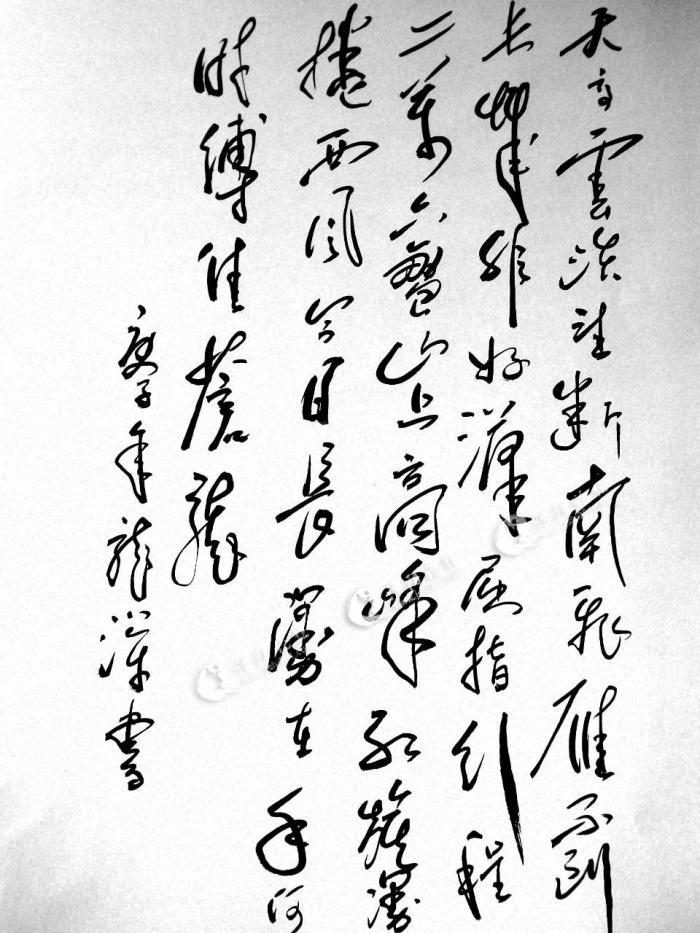 天高雲淡望斷南飛雁不到
长城非好漢屈指行程
二萬六盤山上高峰紅旗漫
捲西风今日長纓在手何
時縛住蒼龍
庚子年龍書